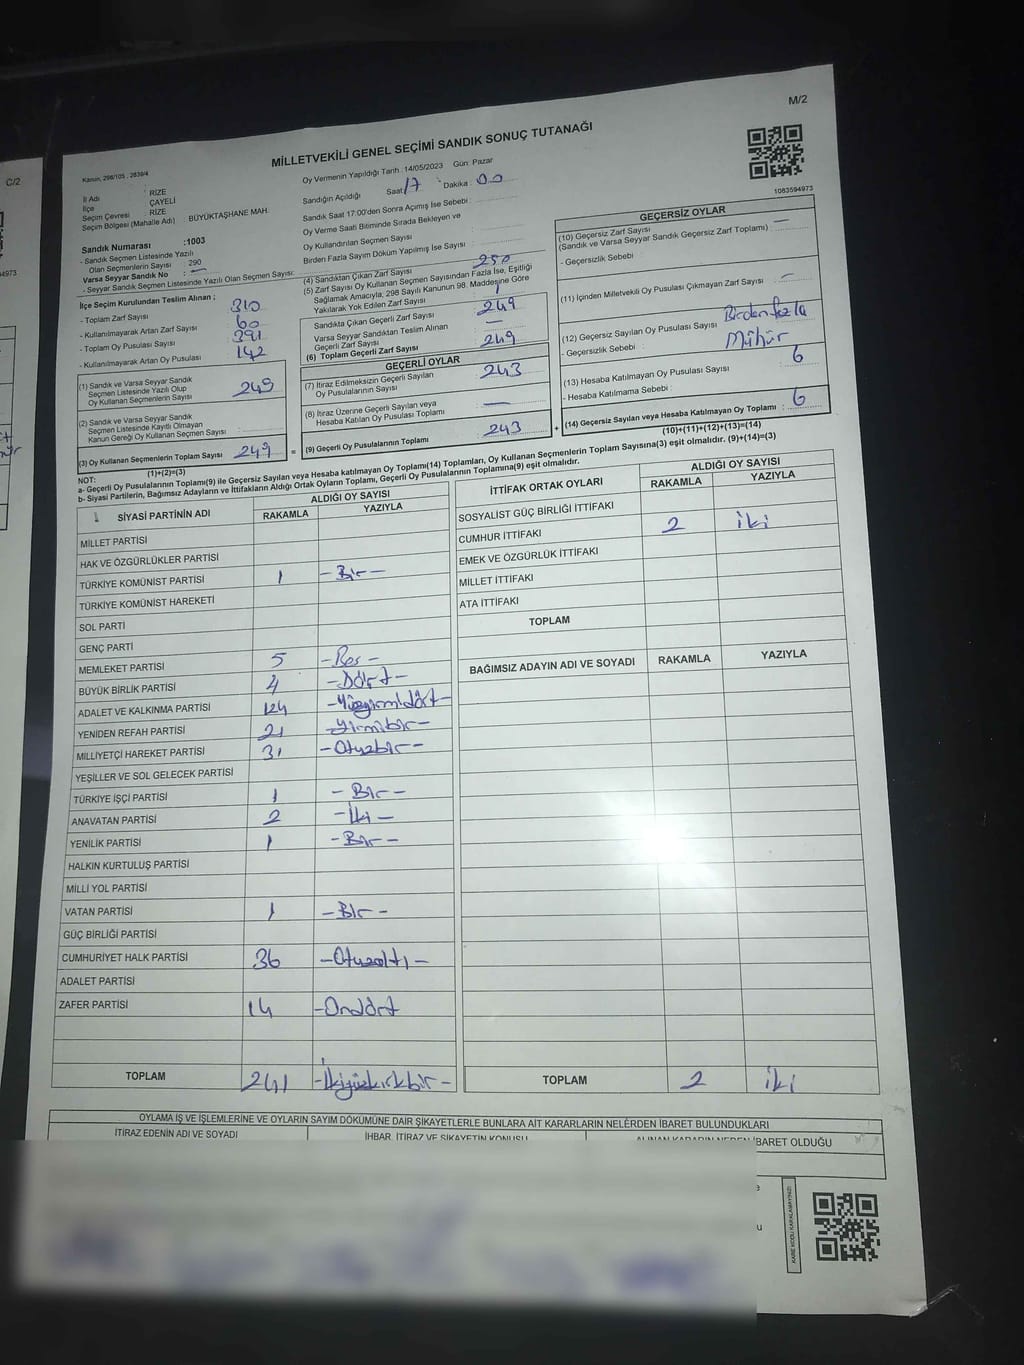 M/2
C/2
MİLLETVEKİLİ GENEL SEÇİMİ SANDIK SONUÇ TUTANAĞI
Kanun, 298/105 ; 2839/4
1083594973
4973
İl Adı : RİZE
İlçe : ÇAYELİ
Seçim Çevresi : RİZE
Seçim Bölgesi (Mahalle Adı) : BÜYÜKTAŞHANE MAH.
Sandık Numarası :1003
- Sandık Seçmen Listesinde Yazılı
Olan Seçmenlerin Sayısı : 290
Varsa Seyyar Sandık No : —
- Seyyar Sandık Seçmen Listesinde Yazılı Olan Seçmen Sayısı:
İlçe Seçim Kurulundan Teslim Alınan ;
- Toplam Zarf Sayısı : 310
- Kullanılmayarak Artan Zarf Sayısı : 60
- Toplam Oy Pusulası Sayısı : 391
- Kullanılmayarak Artan Oy Pusulası : 142
(1) Sandık ve Varsa Seyyar Sandık
Seçmen Listesinde Yazılı Olup
Oy Kullanan Seçmenlerin Sayısı : 249
(2) Sandık ve Varsa Seyyar Sandık
Seçmen Listesinde Kayıtlı Olmayan
Kanun Gereği Oy Kullanan Seçmen Sayısı :
(3) Oy Kullanan Seçmenlerin Toplam Sayısı : 249
(1)+(2)=(3)
Oy Vermenin Yapıldığı Tarih : 14/05/2023 Gün: Pazar
Sandığın Açıldığı Saat : 17 Dakika : 00
Sandık Saat 17:00'den Sonra Açılmış İse Sebebi :
Oy Verme Saati Bitiminde Sırada Bekleyen ve
Oy Kullandırılan Seçmen Sayısı
Birden Fazla Sayım Döküm Yapılmış İse Sayısı :
(4) Sandıktan Çıkan Zarf Sayısı : 250
(5) Zarf Sayısı Oy Kullanan Seçmen Sayısından Fazla İse, Eşitliği
Sağlamak Amacıyla, 298 Sayılı Kanunun 98. Maddesine Göre
Yakılarak Yok Edilen Zarf Sayısı : 1
Sandıkta Çıkan Geçerli Zarf Sayısı : 249
Varsa Seyyar Sandıktan Teslim Alınan
Geçerli Zarf Sayısı : —
(6) Toplam Geçerli Zarf Sayısı : 249
GEÇERLİ OYLAR
(7) İtiraz Edilmeksizin Geçerli Sayılan
Oy Pusulalarının Sayısı : 243
(8) İtiraz Üzerine Geçerli Sayılan veya
Hesaba Katılan Oy Pusulası Toplamı : —
(9) Geçerli Oy Pusulalarının Toplamı : 243
GEÇERSİZ OYLAR
(10) Geçersiz Zarf Sayısı
(Sandık ve Varsa Seyyar Sandık Geçersiz Zarf Toplamı) : —
- Geçersizlik Sebebi :
(11) İçinden Milletvekili Oy Pusulası Çıkmayan Zarf Sayısı : —
(12) Geçersiz Sayılan Oy Pusulası Sayısı : Birden fazla
- Geçersizlik Sebebi : Mühür
(13) Hesaba Katılmayan Oy Pusulası Sayısı : 6
- Hesaba Katılmama Sebebi :
(14) Geçersiz Sayılan veya Hesaba Katılmayan Oy Toplamı : 6
(10)+(11)+(12)+(13)=(14)
NOT:
a- Geçerli Oy Pusulalarının Toplamı(9) ile Geçersiz Sayılan veya Hesaba katılmayan Oy Toplamı(14) Toplamları, Oy Kullanan Seçmenlerin Toplam Sayısına(3) eşit olmalıdır. (9)+(14)=(3)
b- Siyasi Partilerin, Bağımsız Adayların ve İttifakların Aldığı Ortak Oyların Toplamı, Geçerli Oy Pusulalarının Toplamına(9) eşit olmalıdır.
SİYASİ PARTİNİN ADI ALDIĞI OY SAYISI
RAKAMLA YAZIYLA
MİLLET PARTİSİ
HAK VE ÖZGÜRLÜKLER PARTİSİ
TÜRKİYE KOMÜNİST PARTİSİ 1 -Bir-
TÜRKİYE KOMÜNİST HAREKETİ
SOL PARTİ
GENÇ PARTİ
MEMLEKET PARTİSİ 5 -Beş-
BÜYÜK BİRLİK PARTİSİ 4 -Dört-
ADALET VE KALKINMA PARTİSİ 124 -Yüzyirmidört-
YENİDEN REFAH PARTİSİ 21 -Yirmibir-
MİLLİYETÇİ HAREKET PARTİSİ 31 -Otuzbir-
YEŞİLLER VE SOL GELECEK PARTİSİ
TÜRKİYE İŞÇİ PARTİSİ 1 -Bir-
ANAVATAN PARTİSİ 2 -İki-
YENİLİK PARTİSİ 1 -Bir-
HALKIN KURTULUŞ PARTİSİ
MİLLİ YOL PARTİSİ
VATAN PARTİSİ 1 -Bir-
GÜÇ BİRLİĞİ PARTİSİ
CUMHURİYET HALK PARTİSİ 36 -Otuzaltı-
ADALET PARTİSİ
ZAFER PARTİSİ 14 -Ondört
TOPLAM 241 -İkiyüzkırkbir-
İTTİFAK ORTAK OYLARI ALDIĞI OY SAYISI
RAKAMLA YAZIYLA
SOSYALİST GÜÇ BİRLİĞİ İTTİFAKI
CUMHUR İTTİFAKI 2 iki
EMEK VE ÖZGÜRLÜK İTTİFAKI
MİLLET İTTİFAKI
ATA İTTİFAKI
TOPLAM
BAĞIMSIZ ADAYIN ADI VE SOYADI RAKAMLA YAZIYLA
TOPLAM 2 iki
OYLAMA İŞ VE İŞLEMLERİNE VE OYLARIN SAYIM DÖKÜMÜNE DAİR ŞİKAYETLERLE BUNLARA AİT KARARLARIN NELERDEN İBARET BULUNDUKLARI
İTİRAZ EDENİN ADI VE SOYADI İHBAR, İTİRAZ VE ŞİKAYETİN KONUSU ALINAN KARARIN NEDEN İBARET OLDUĞU
KARE KODU KARALAMAYINIZ!